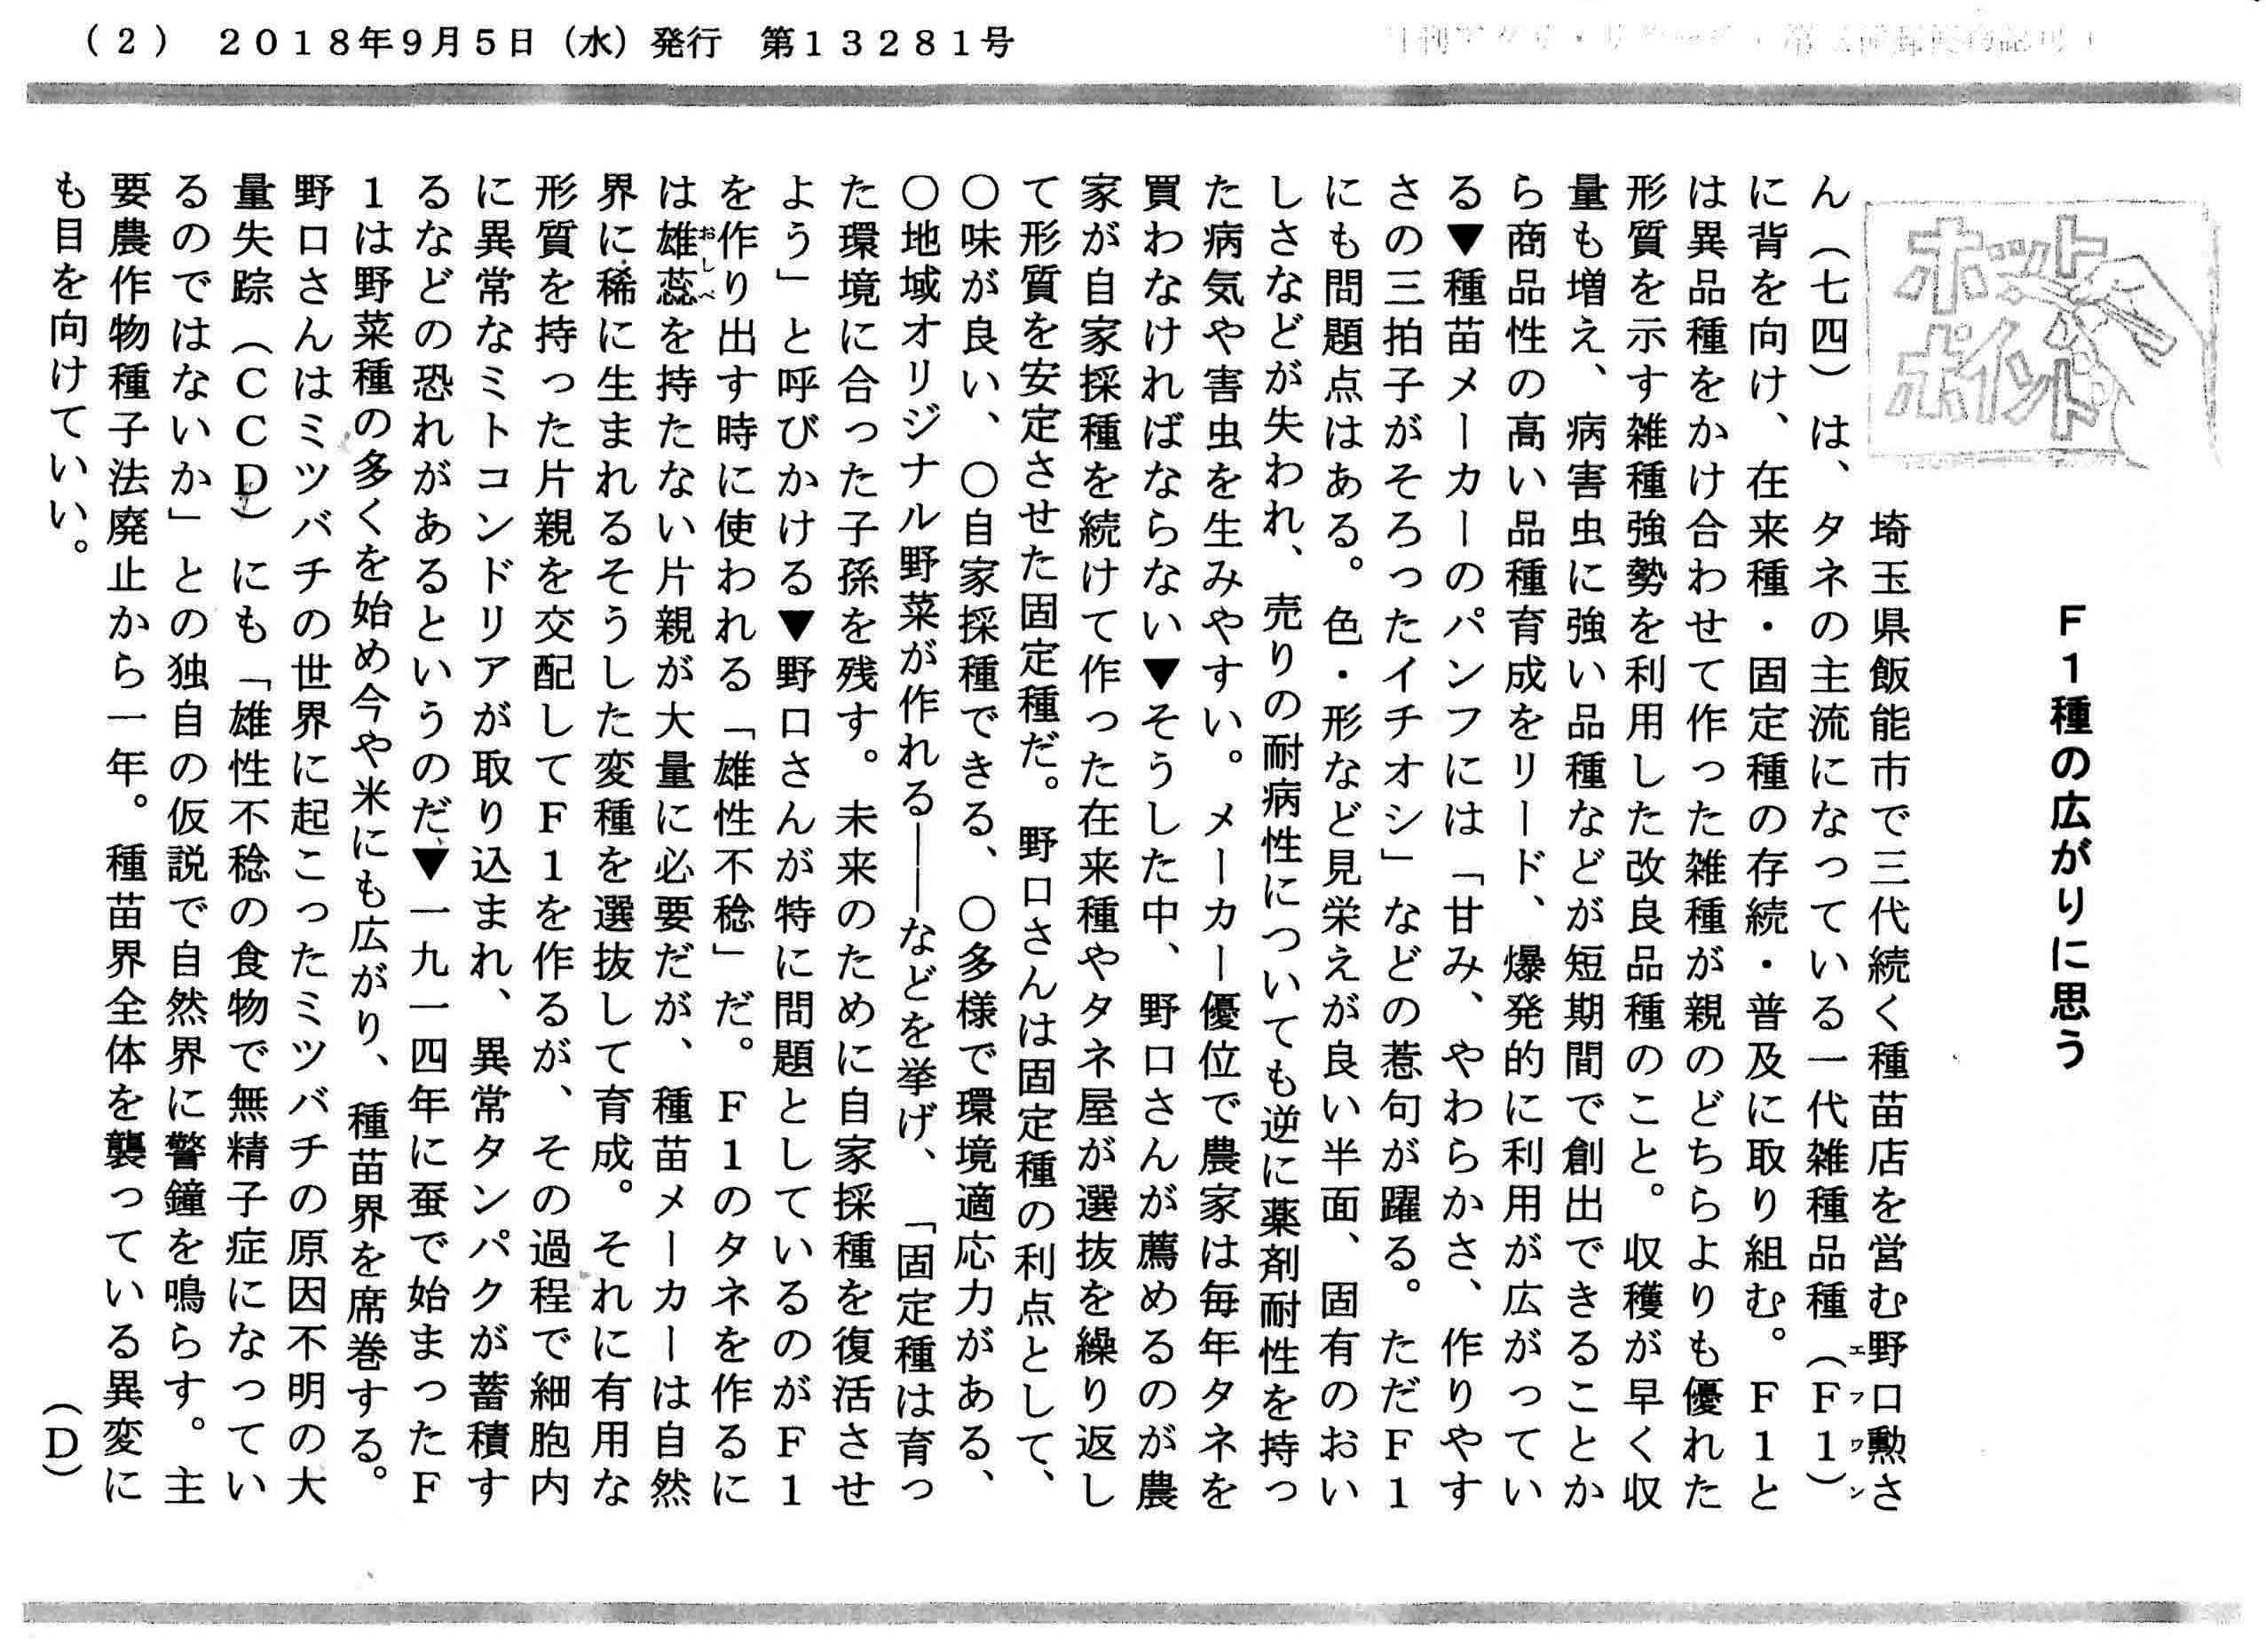 (2)　2018年9月5日（水）発行　第13281号
ホット
ポイント
F1種の広がりに思う
埼玉県飯能市で三代続く種苗店を営む野口勲さ
ん（七四）は、タネの主流になっている一代雑種品種（F1エフワン）
に背を向け、在来種・固定種の存続・普及に取り組む。F1と
は異品種をかけ合わせて作った雑種が親のどちらよりも優れた
形質を示す雑種強勢を利用した改良品種のこと。収穫が早く収
量も増え、病害虫に強い品種などが短期間で創出できることか
ら商品性の高い品種育成をリード、爆発的に利用が広がってい
る▼種苗メーカーのパンフには「甘み、やわらかさ、作りやす
さの三拍子がそろったイチオシ」などの惹句が躍る。ただF1
にも問題点はある。色・形など見栄えが良い半面、固有のおい
しさなどが失われ、売りの耐病性についても逆に薬剤耐性を持っ
た病気や害虫を生みやすい。メーカー優位で農家は毎年タネを
買わなければならない▼そうした中、野口さんが薦めるのが農
家が自家採種を続けて作った在来種やタネ屋が選抜を繰り返し
て形質を安定させた固定種だ。野口さんは固定種の利点として、
〇味が良い、〇自家採種できる、〇多様で環境適応力がある、
〇地域オリジナル野菜が作れる――などを挙げ、「固定種は育っ
た環境に合った子孫を残す。未来のために自家採種を復活させ
よう」と呼びかける▼野口さんが特に問題としているのがF1
を作り出す時に使われる「雄性不稔」だ。F1のタネを作るに
は雄蕊おしべを持たない片親が大量に必要だが、種苗メーカーは自然
界に稀に生まれるそうした変種を選抜して育成。それに有用な
形質を持った片親を交配してF1を作るが、その過程で細胞内
に異常なミトコンドリアが取り込まれ、異常タンパクが蓄積す
るなどの恐れがあるというのだ▼一九一四年に蚕で始まったF
1は野菜種の多くを始め今や米にも広がり、種苗界を席巻する。
野口さんはミツバチの世界に起こったミツバチの原因不明の大
量失踪（CCD）にも「雄性不稔の食物で無精子症になってい
るのではないか」との独自の仮説で自然界に警鐘を鳴らす。主
要農作物種子法廃止から一年。種苗界全体を襲っている異変に
も目を向けていい。
（D）